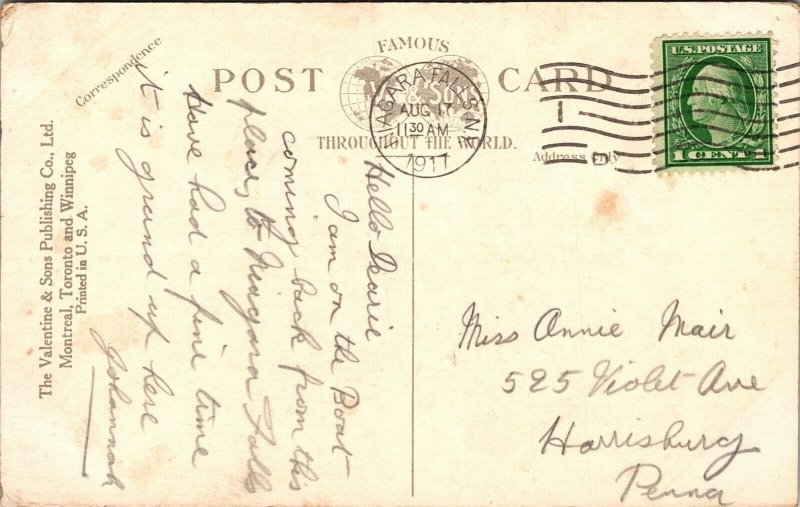 FAMOUS
POST CARD
V & SONS
THROUGHOUT THE WORLD.
Correspondence
Address Only
NIAGARA FALLS N.Y.
AUG 17
11 30 AM
1917
1
U.S. POSTAGE
1 CENT 1
The Valentine & Sons Publishing Co., Ltd.
Montreal, Toronto and Winnipeg
Printed in U. S. A.
Hello Dearie
I am on the Boat
coming back from this
place, to Niagara Falls
Have had a fine time
it is grand up here
Johannah
Miss Annie Mair
525 Violet Ave
Harrisburg
Penna